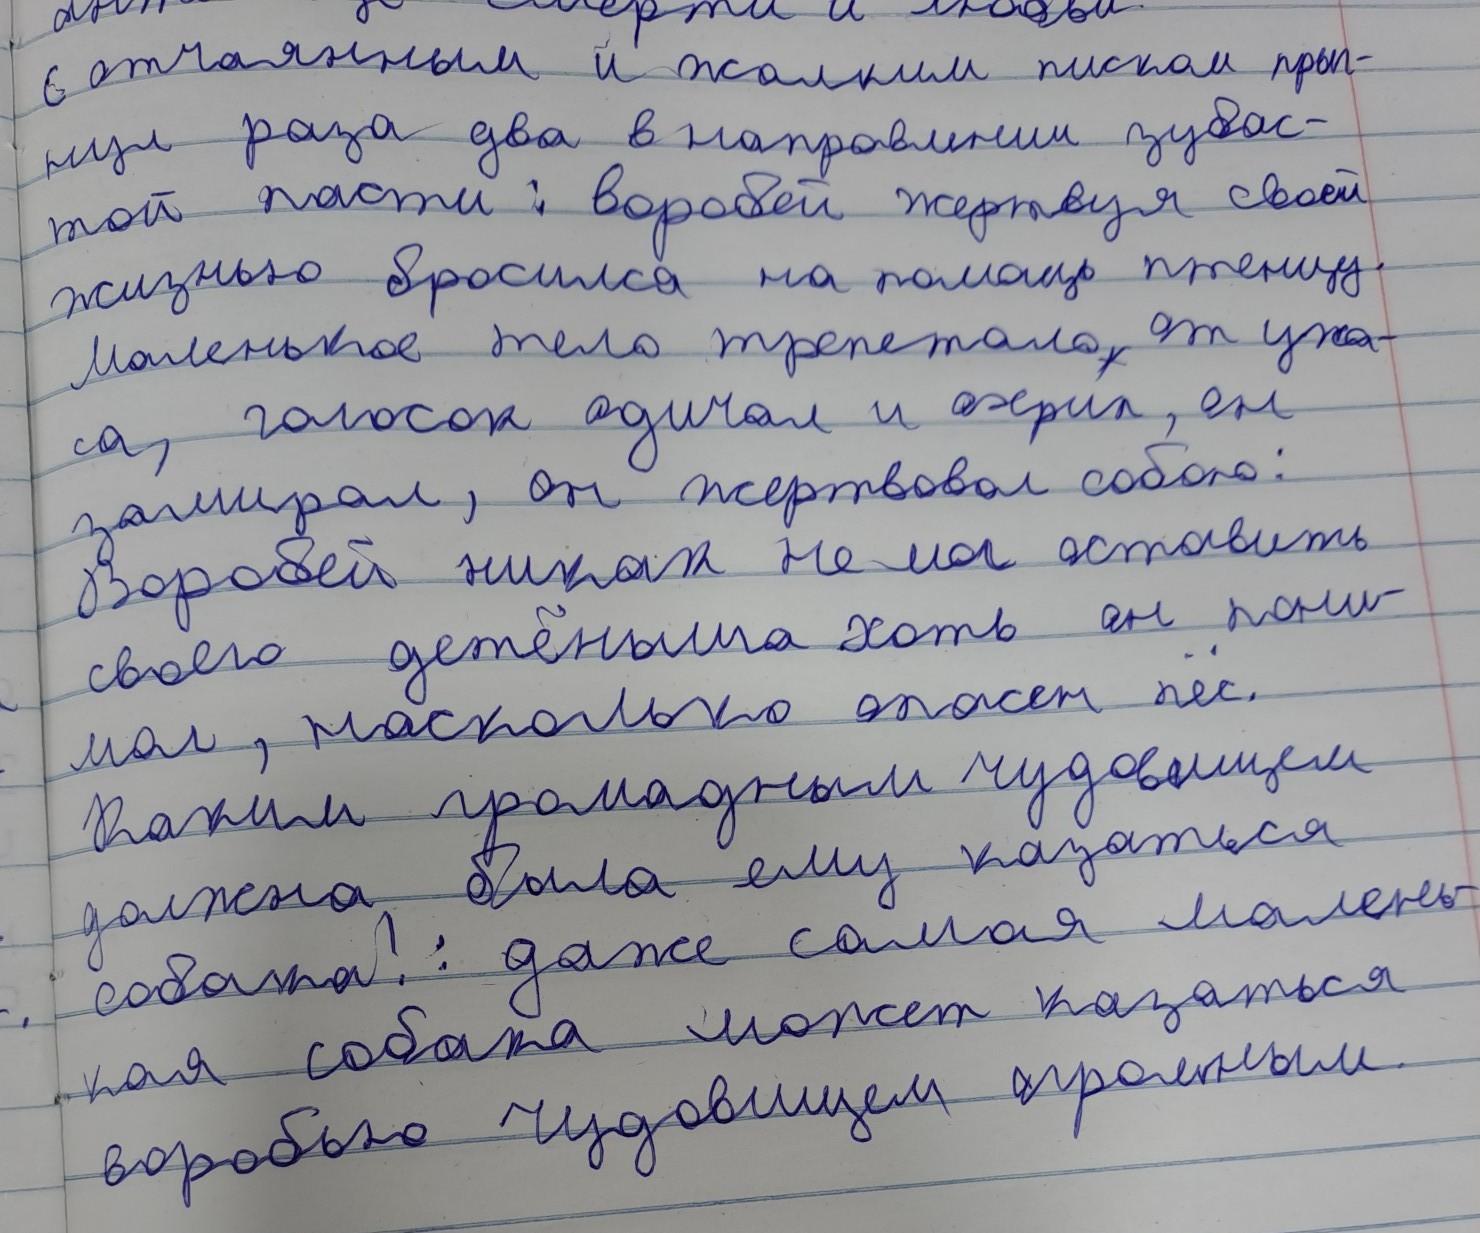 смерти и любви.
с отчаянным и жалким писком прыг-
нул раза два в направлении зубас-
той пасти: воробей жертвуя своей
жизнью бросился на помощь птенцу.
Маленькое тело трепетало, от ужа-
са, голосок одичал и охрип, он
замирал, он жертвовал собою:
Воробей никак не мог оставить
своего детёныша хоть он пони-
мал, насколько опасен пёс.
Каким громадным чудовищем
должна была ему казаться
собака!: даже самая малень-
кая собака может казаться
воробью чудовищем огромным.